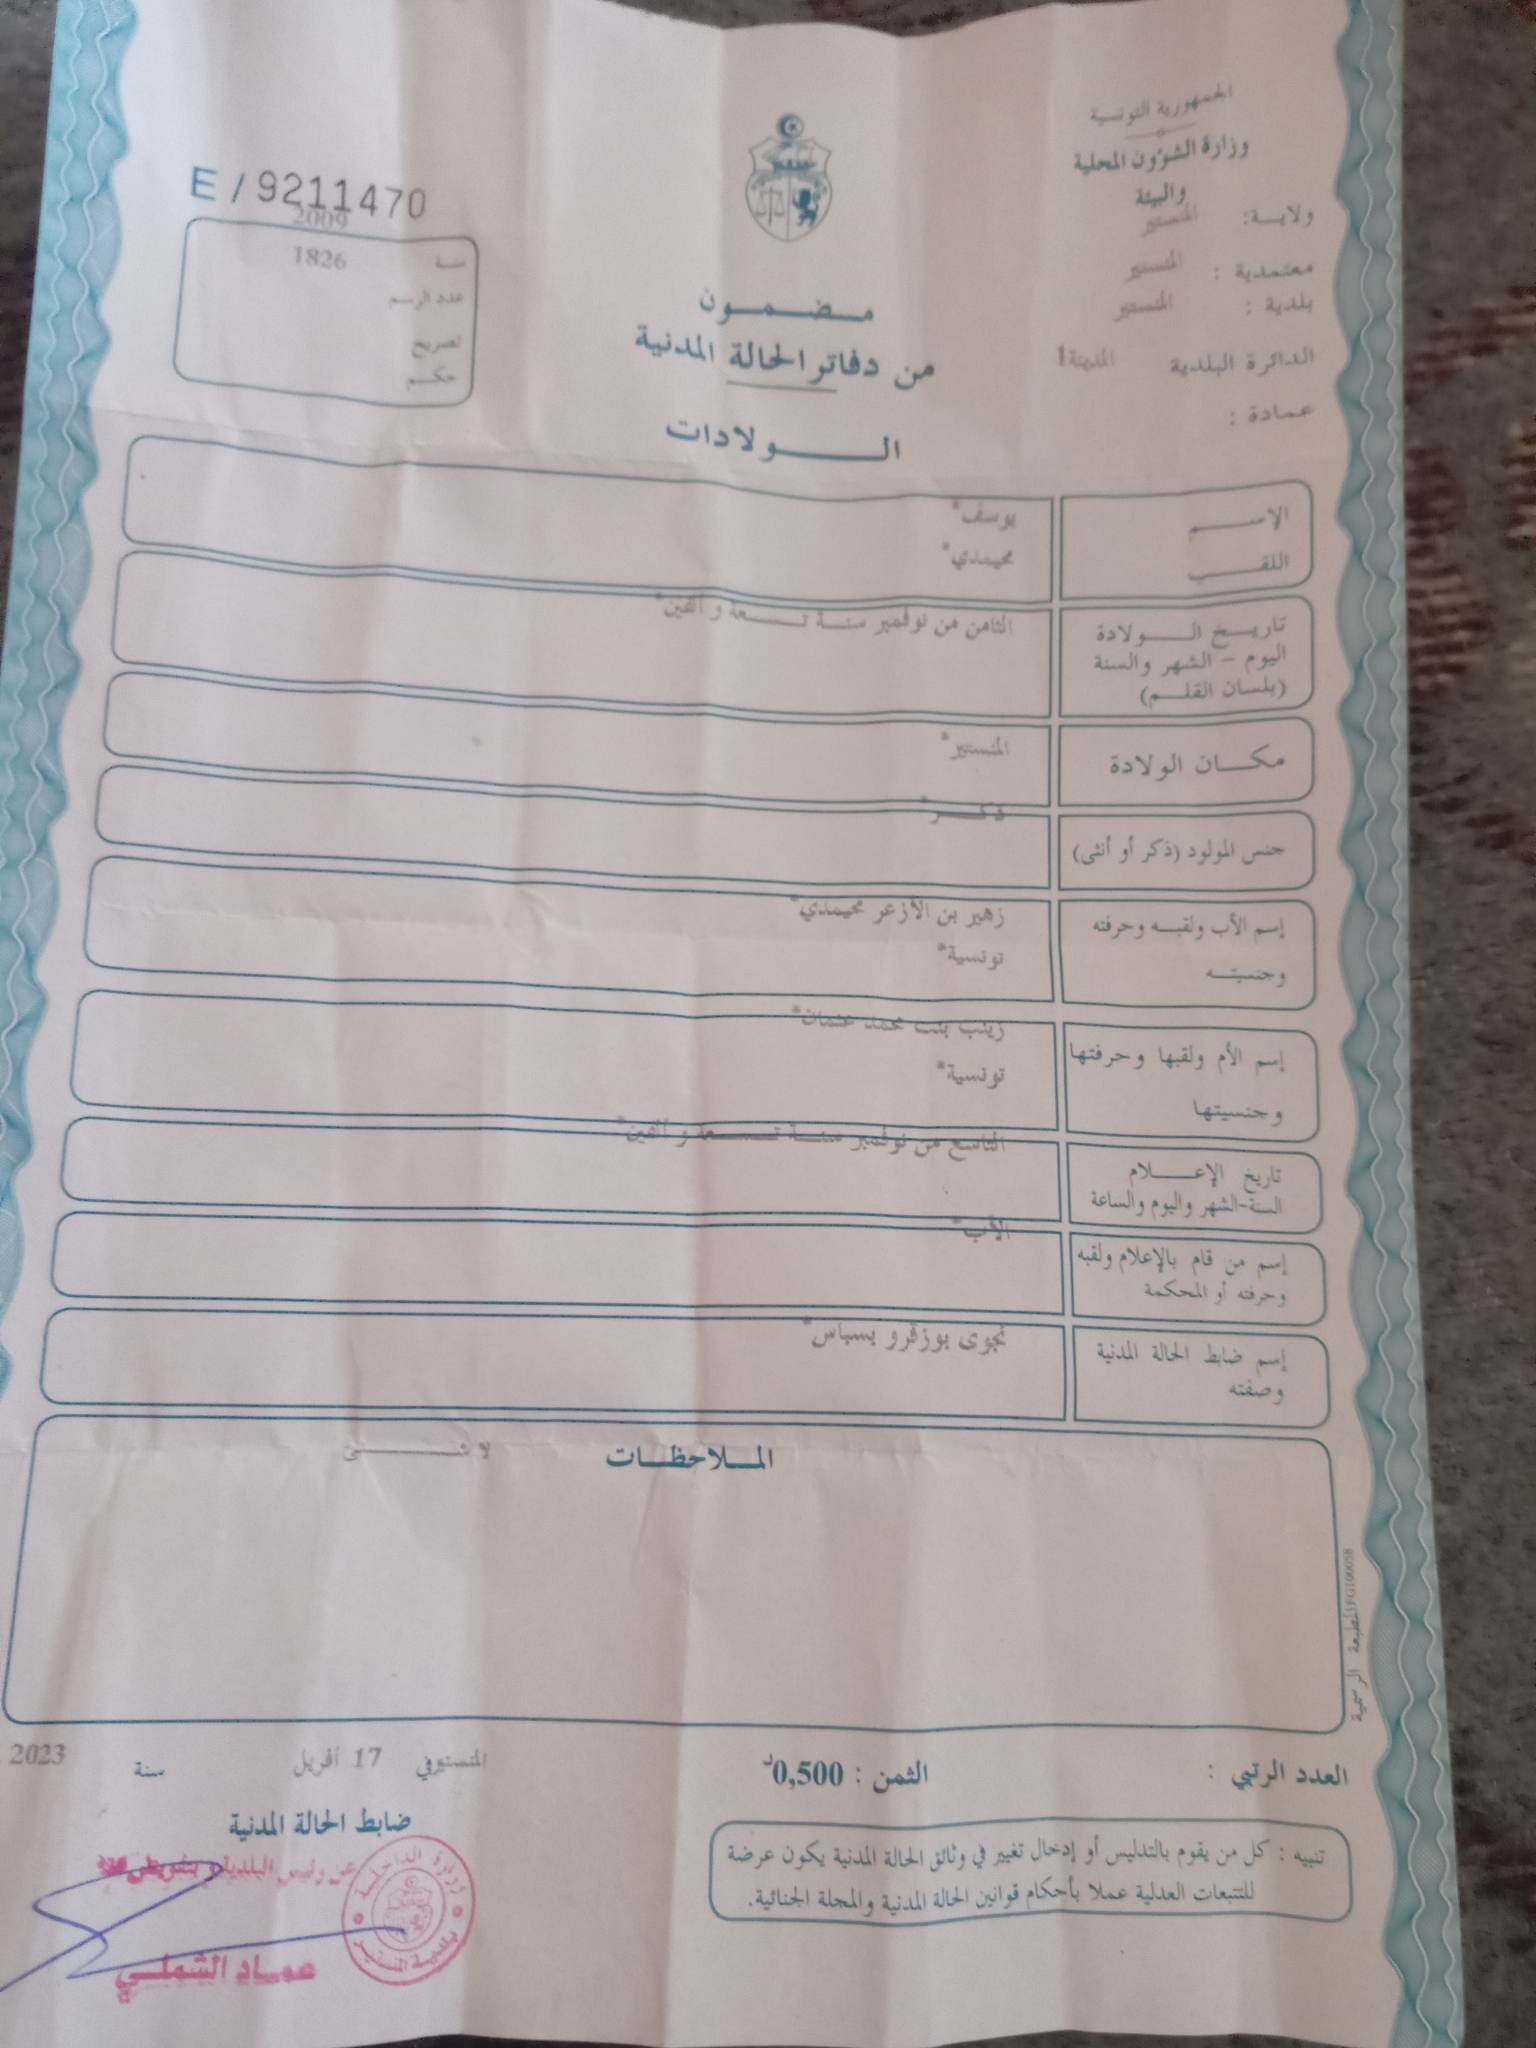 الجمهورية التونسية
وزارة الشؤون المحلية
والبيئة
ولايـــة: المنستير
معتمدية : المنستير
بلدية : المنستير
الدائرة البلدية المدينة1
عمادة :
مـــضـــمـــون
من دفاتر الحالة المدنية
الـــــولادات
E / 9211470
2009
سنة 1826
عدد الرسم
تصريح
حكـــم
الإســـــم يوسف*
اللقـــــب محيمدي*
تاريـــخ الـــــولادة الثامن من نوفمبر سنـــة تـــسعة و ألفين*
اليوم - الشهر والسنة
(بلسان القلـــم)
مكـــان الولادة المنستير*
جنس المولود (ذكر أو أنثى) ذكـــر*
إسم الأب ولقبـــه وحرفته زهير بن الأزعر محيمدي*
وجنسيتـــه تونسية*
إسم الأم ولقبها وحرفتها زينب بنت محمد عثمان*
وجنسيتها تونسية*
تاريخ الإعـــــلام التاسع من نوفمبر سنـــة تـــسعة و ألفين*
السنة-الشهر واليوم والساعة
إسم من قام بالإعلام ولقبه الأب*
وحرفته أو المحكمة
إسم ضابط الحالة المدنية نجوى بوزقرو بسباس*
وصفته
المـــلاحظـــات لا شـــــئ
المطبعة الرسمية
العدد الرتبي :
الثمن : 0,500د
المنستير في 17 أفريل سنة 2023
ضابط الحالة المدنية
عن رئيس البلدية و بتفويض منه
وزارة الداخلية
بلدية المنستير
عماد الشملي
تنبيه : كل من يقوم بالتدليس أو إدخال تغيير في وثائق الحالة المدنية يكون عرضة
للتتبعات العدلية عملا بأحكام قوانين الحالة المدنية والمجلة الجنائية.